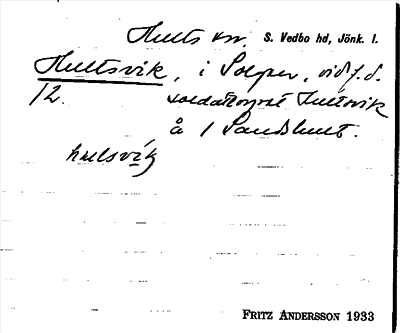 Hults sn. S. Vedbo hd, Jönk. l.
Hultsvik, i Solgen, vid f. d.
12. soldattorpet Hultsvik
å 1 Sandshult.
hulsvik
FRITZ ANDERSSON 1933